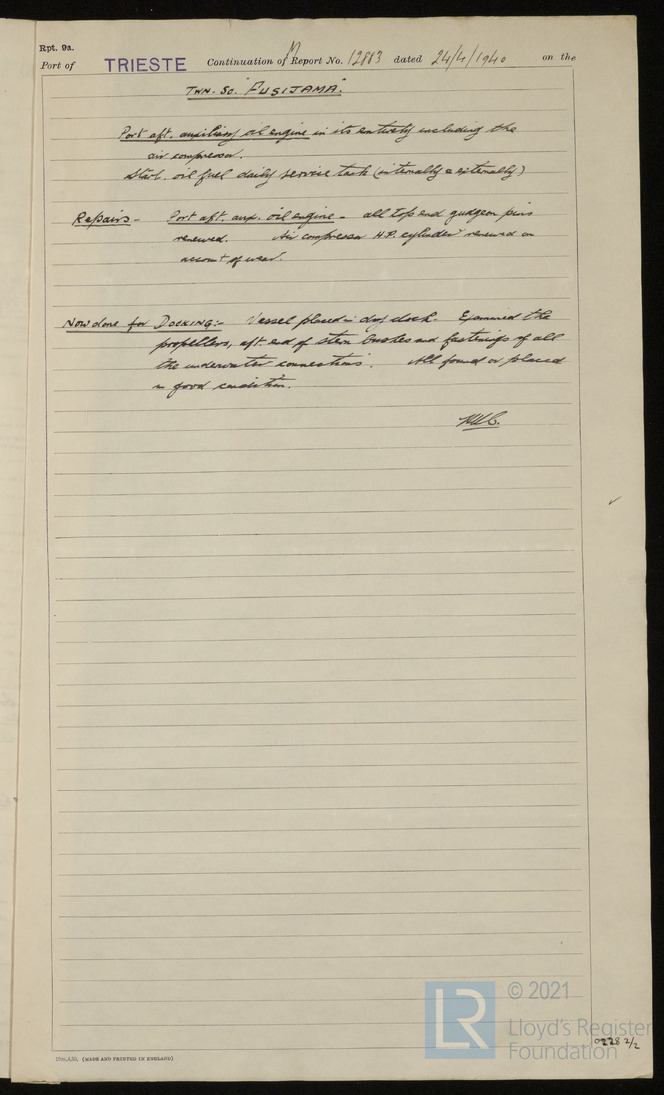 Rpt. 9a.
Port of TRIESTE Continuation of M Report No. 12883 dated 24/4/1940 on the
TWN. SC. "FUSIJAMA".
Port aft. auxiliary oil engine in its entirety including the
air compressor.
Start. oil fuel daily service tank (internally & externally)
Repairs - Port aft. aux. oil engine - all top end gudgeon pins
renewed. Air compressor H.P. cylinder renewed on
account of wear.
Now done for Docking:- Vessel placed in dry dock. Examined the
propellers, aft end of stern bushes and fastenings of all
the underwater connections. All found or placed
in good condition.
© 2021
LR
Lloyd's Register
Foundation
0228 2/2
(MADE AND PRINTED IN ENGLAND)